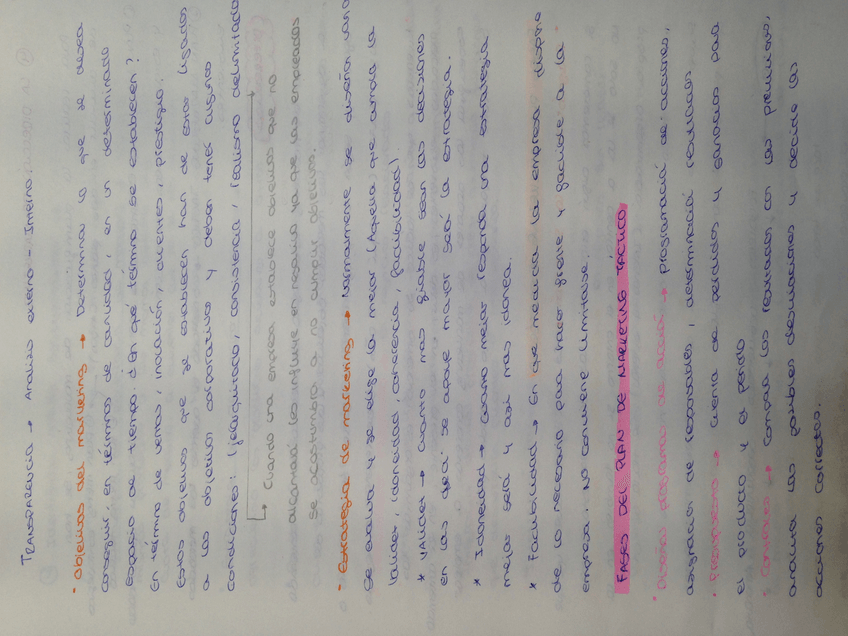 TRANSPARENCIA → Análisis externo - Interno.
- Objetivos del marketing → Determinar lo que se desea
conseguir, en términos de cantidad, en un determinado
espacio de tiempo. ¿En qué término se establecen?
En término de ventas, innovación, clientes, prestigio.
Estos objetivos que se establecen han de estar ligados
a los objetivos corporativos y deben tener algunas
condiciones: (jerarquizado, consistencia, realismo delimitado
→ Cuando una empresa establece objetivos que no
alcanzará los influye en negativo ya que los empleados
se acostumbra a no cumplir objetivos.
- Estrategia de marketing → Normalmente se diseñan varias
se evalúa y se elige la mejor (Aquella que cumpla la
validez, idoneidad, coherencia, factibilidad).
* Validez → Cuanto mas fiable sean las decisiones
en las que se apoye mayor será la estrategia.
* Idoneidad → Cuanto mejor responda una estrategia
mejor será y así mas idonea.
* Factibilidad → En que medida la empresa dispone
de lo necesario para hacer frente y facilite a la
empresa. No conviene limitarse.
FASES DEL PLAN DE MARKETING TÁCTICO
• Diseñar programas de acción → programación de acciones,
asignación de responsables, determinación resultados
• Presupuesto → Cuenta de pérdidas y ganacias para
el producto y el periodo
• Controles → Compara los resultados con las previsiones,
analiza las posibles desviaciones y decide las
acciones correctas.